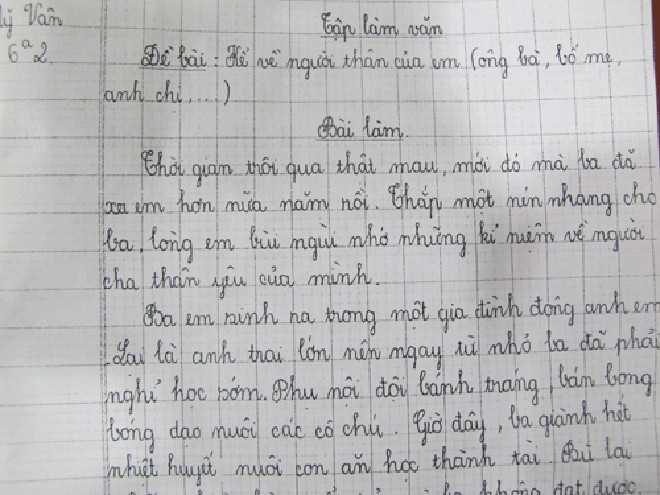 lý Vân
6ª2
Tập làm văn
Đề bài: Kể về người thân của em (ông bà, bố mẹ,
anh chị, ....)
Bài làm.
Thời gian trôi qua thật mau, mới đó mà ba đã
xa em hơn nửa năm rồi. Thắp một nén nhang cho
ba, lòng em bùi ngùi nhớ những kỉ niệm về người
cha thân yêu của mình.
Ba em sinh ra trong một gia đình đông anh em
Lại là anh trai lớn nên ngay từ nhỏ ba đã phải
nghỉ học sớm. Phụ nội đội bánh tráng, bán bong
bóng dạo nuôi các cô chú. Giờ đây, ba giành hết
nhiệt huyết nuôi con ăn học thành tài. Bù lại
không đạt được